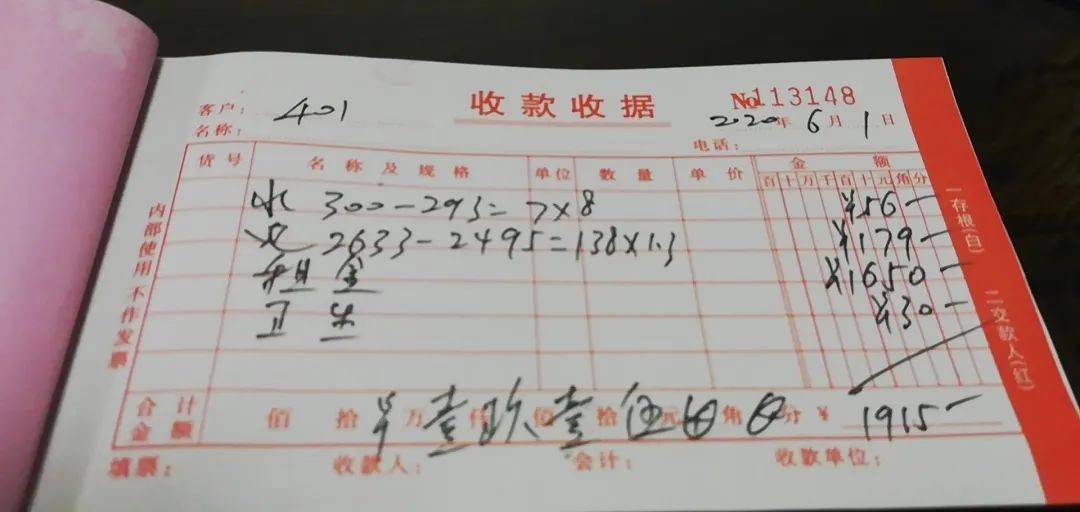 收款收据
No113148
客户名称: 401
2020年6月1日
电话:
货号 名称及规格 单位 数量 单价 金额
百十万千百十元角分
水 300-293=7×8 ¥56-
2633-2495=138×1.3 ¥179-
租金 ¥1650-
卫 ¥30-
合计金额 佰 拾 ¥万壹仟玖佰壹拾伍元0角0分 ¥1915-
填票: 收款人: 会计: 收款单位:
内部使用不作发票
一存根(白) 二交款人(红)